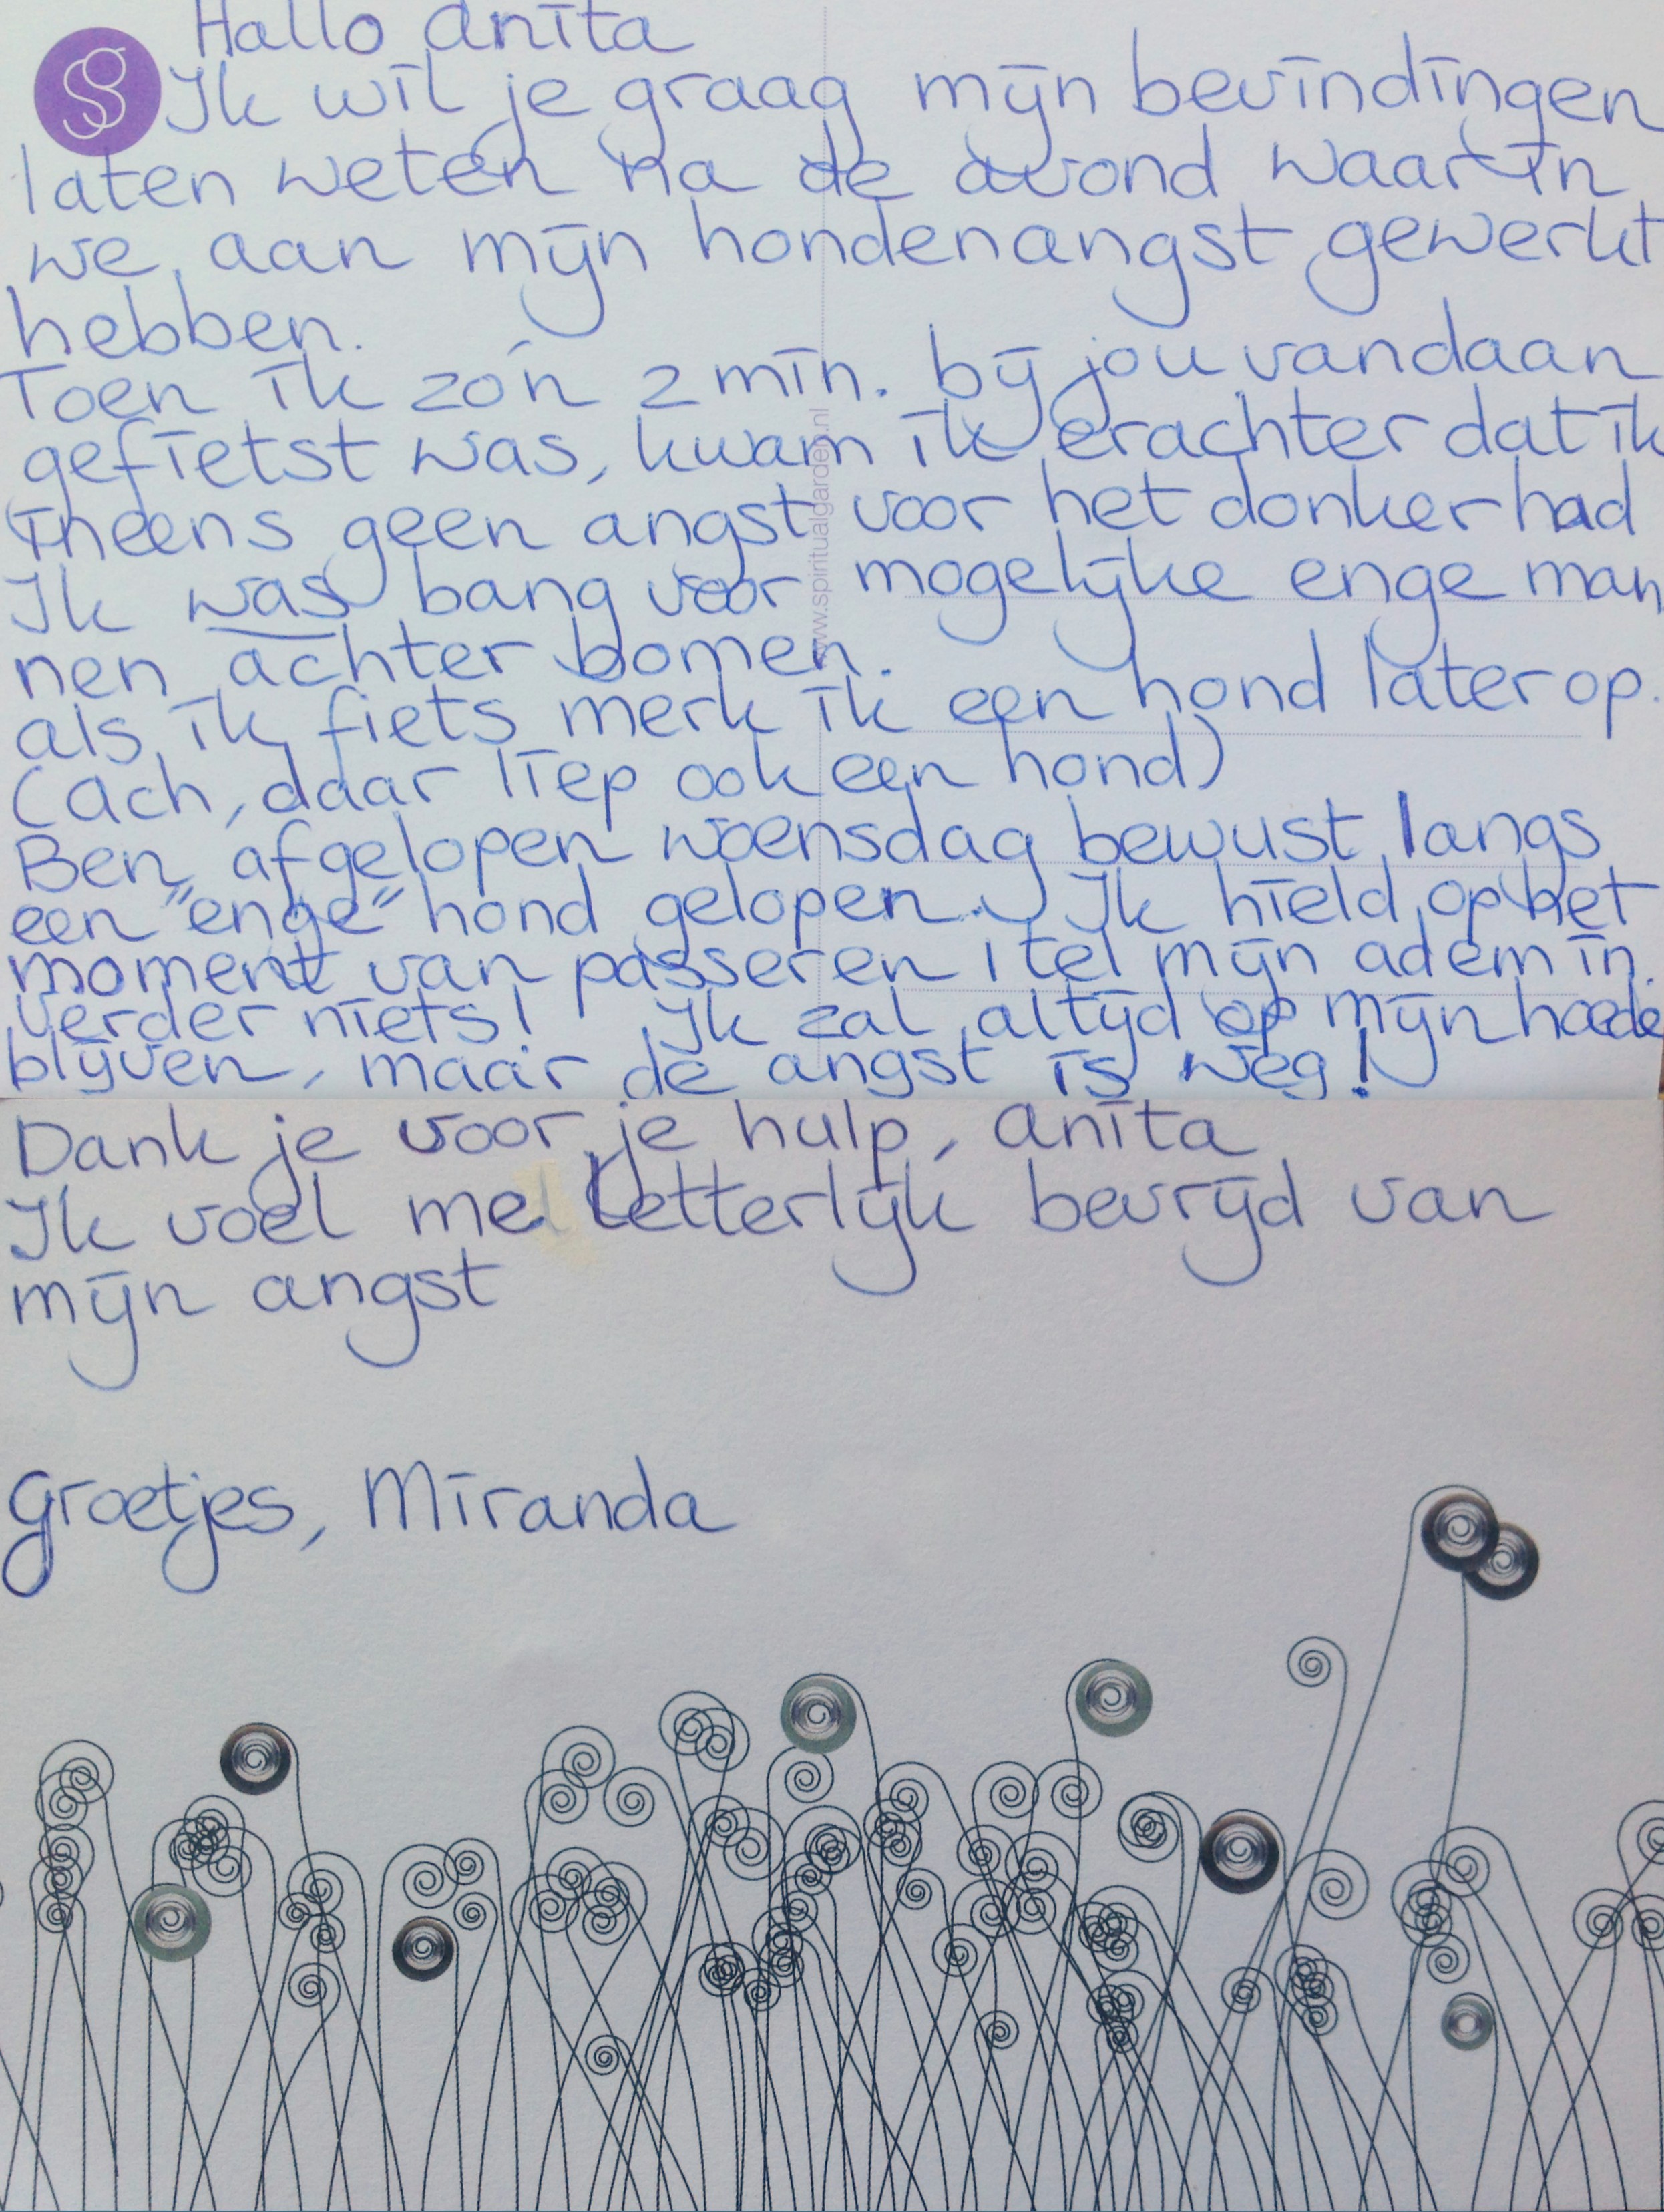 Hallo Anita
Ik wil je graag mijn bevindingen
laten weten na de avond waarin
we aan mijn hondenangst gewerkt
hebben.
Toen ik zo'n 2 min. bij jou vandaan
gefietst was, kwam ik erachter dat ik
ineens geen angst voor het donker had
Ik was bang voor mogelijke enge man
nen achter bomen.
als ik fiets merk ik een hond later op.
(Ach, daar liep ook een hond)
Ben afgelopen woensdag bewust langs
een "enge" hond gelopen. Ik hield op het
moment van passeren 1 tel mijn adem in.
verder niets! Ik zal altijd op mijn hoede
blijven, maar de angst is weg!
Dank je voor je hulp, Anita
Ik voel me letterlijk bevrijd van
mijn angst
Groetjes, Miranda
www.spiritualgarden.nl